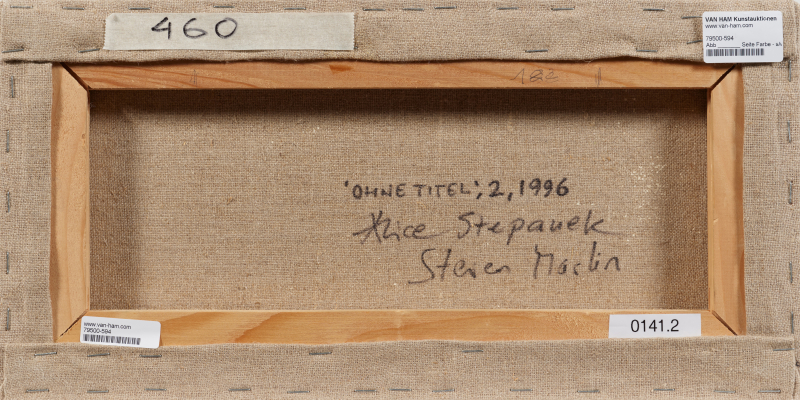 460
VAN HAM Kunstauktionen
www.van-ham.com
79500-594
Abb. Seite Farbe - s/w
'OHNE TITEL', 2, 1996
Alice Stepanek
Steven Maslin
www.van-ham.com
79500-594
0141.2